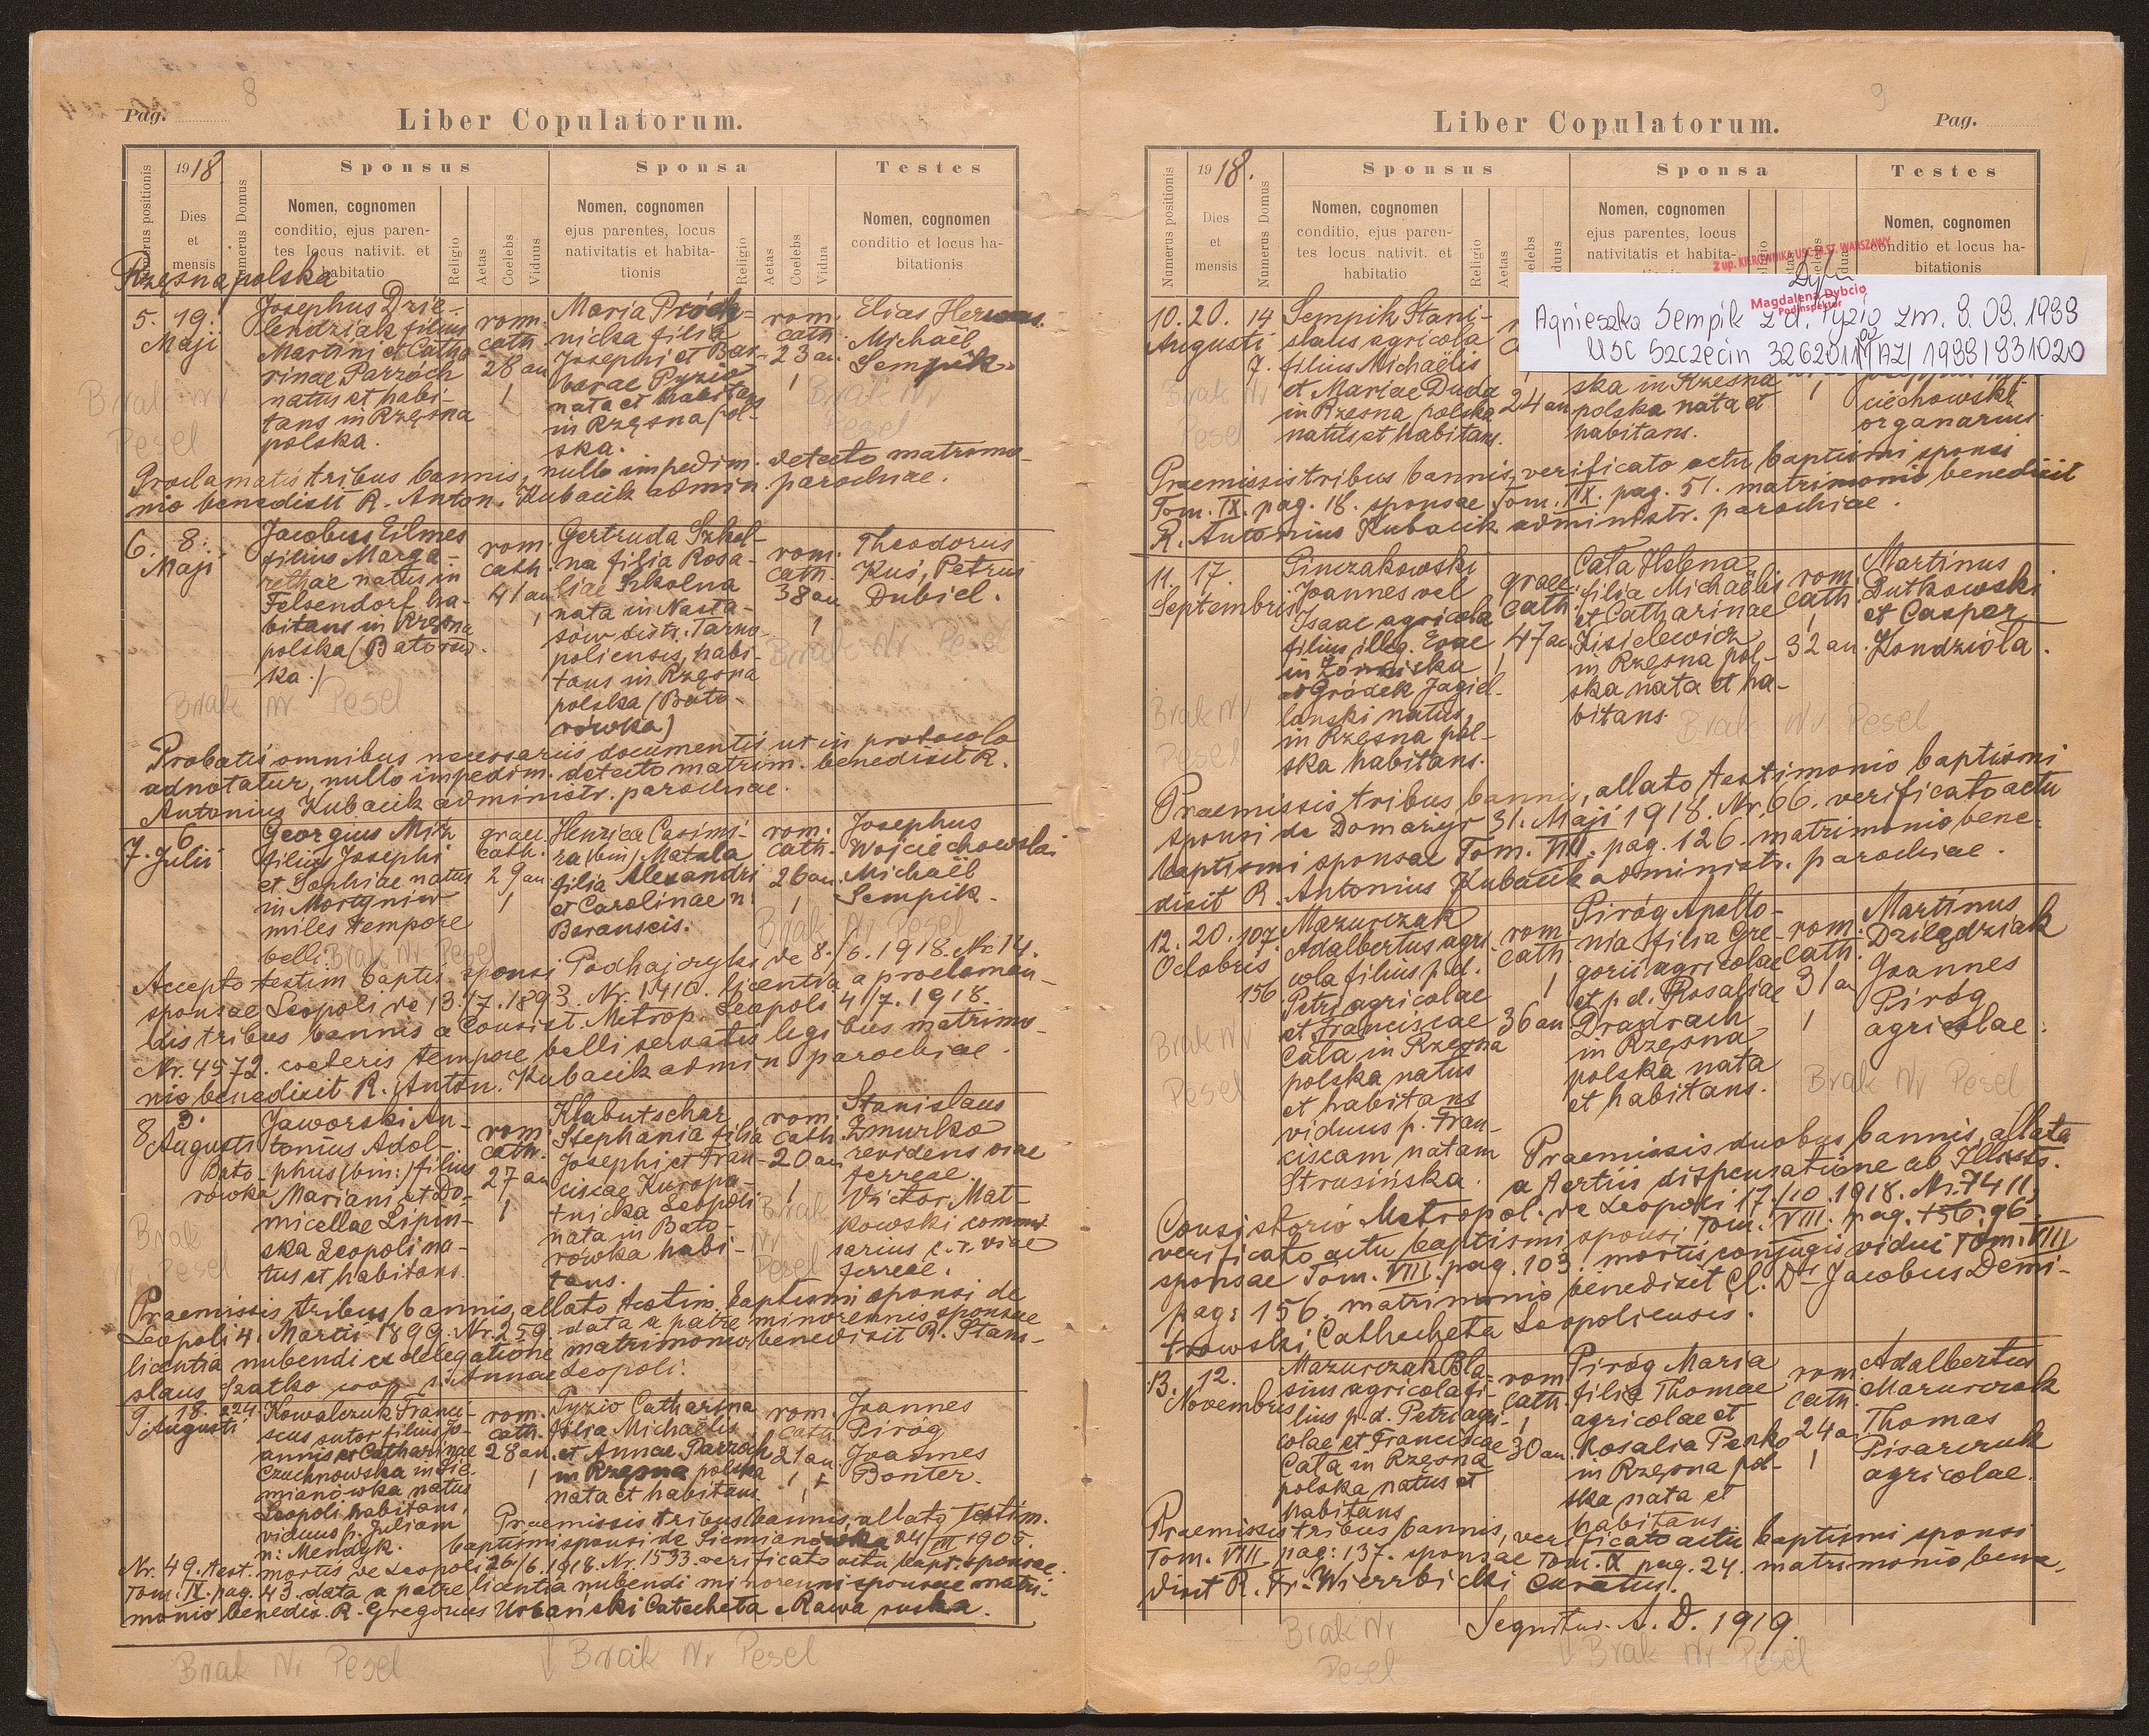 8
Pag.
Liber Copulatorum.
Numerus positionis
1918
Dies
et
mensis
Numerus Domus
Sponsus
Nomen, cognomen
conditio, ejus paren-
tes locus nativit. et
habitatio
Religio
Aetas
Coelebs
Viduus
Sponsa
Nomen, cognomen
ejus parentes, locus
nativitatis et habita-
tionis
Religio
Aetas
Coelebs
Vidua
Testes
Nomen, cognomen
conditio et locus ha-
bitationis
Rzęsna polska
5. 19.
Maji
Josephus Dzie-
lendziak filius
Martini et Catha
rinae Parzoch
natus et habi-
tans in Rzęsna
polska.
rom.
cath.
28 an
1
Maria Proch-
nicka filia
Josephi et Bar-
barae Pyzio
nata et habitans
in Rzęsna pol-
ska.
rom.
cath.
23 an.
1
Elias
Michaël
Sempik.
Brak Nr
Pesel
Brak Nr
Pesel
Proclamatis tribus bannis, nullo impedim. detecto matrimo-
nio benedixit R. Anton. Kubacik admin. parochiae.
6. 8.
Maji
Jacobus Eilmes
filius Marga-
rethae natus in
Felsendorf ha-
bitans in Rzęsna
polska (Batorów-
ka.)
rom.
cath.
41 an
1
Gertruda Szkol-
na filia Rosa-
liae Szkolna
nata in Nasta-
sów distr. Tarno-
poliensis, habi-
tans in Rzęsna
polska (Bato-
rówka)
rom.
cath.
38 an
1
Theodorus
Kuś, Petrus
Dubiel.
Brak Nr Pesel
Brak Nr Pesel
Probatis omnibus necessariis documentis ut in protocolo
adnotatur, nullo impedim. detecto matrim. benedixit R.
Antonius Kubacik administr. parochiae.
7. 6
Julii
Georgius Mich
filius Josephi
et Sophiae natus
in
miles tempore
belli.
graec
cath.
29 an
1
Henrica Casimi-
ra (bin) Matala
filia Alexandri
et Carolinae n.
rom.
cath.
26 an.
1
Josephus
Wojciechowski
Michaël
Sempik.
Brak Nr Pesel
Brak Nr Pesel
Accepto testim baptis. sponsi Podhajczyki de 8./6. 1918. Nr 14.
sponsae Leopoli de 13./7. 1893. Nr. 1410. licentia a proclaman-
dis tribus bannis a Consist. Metrop. Leopoli 4/7. 1918.
Nr. 4572. coeteris tempore belli servatis legibus matrimo-
nio benedixit R. Anton. Kubacik admin parochiae.
8 3.
Augusti
Bato-
rowka
Jaworski An-
tonius Adol-
phus (bin:) filius
Mariani et Do-
micellae Lipiń-
ska Leopoli na-
tus et habitans.
rom.
cath.
27 an
1
Klabutschar
Stephania filia
Josephi et Fran-
ciscae Kuropa-
tnicka Leopoli
nata in Bato-
rowka habi-
tans.
rom.
cath.
20 an
1
Stanislaus
Zmurko
revidens viae
ferreae.
Victor Mat-
kowski commi-
sarius c. r. viae
ferreae.
Brak
Nr Pesel
Brak
Nr
Pesel
Praemissis tribus bannis, allato testim. baptismi sponsi de
Leopoli 4. Martii 1899. Nr. 259. data a patre minorennis sponsae
licentia nubendi ex delegatione matrimonio benedixit R. Stani-
slaus Szatko coop. s. Annae Leopoli.
9 18. 224.
Augusti
Kowalczuk Franci-
scus sutor filius Jo-
annis et Catharinae
Czuchnowska in Sie-
mianówka natus
Leopoli habitans,
viduus p. Juliam
n: Mendyk.
rom.
cath.
28 an.
1
Pyzio Catharina
filia Michaëlis
et Annae Parzoch
in Rzęsna polska
nata et habitans
rom.
cath.
21 an.
1
Joannes
Piróg
Joannes
Bonter.
Praemissis tribus bannis, allato testim.
baptismi sponsi de Siemianówka 24/III 1905.
Nr. 49. test. mortis de Leopoli 26/6. 1918. Nr. 1533. verificato actu bapt. sponsae
Tom. IX. pag. 43. data a patre licentia nubendi minorenni sponsae matri-
monio benedix. R. Gregorius Urbański Catecheta e Rawa ruska.
Brak Nr Pesel
Brak Nr Pesel
9
Liber Copulatorum.
Pag.
Numerus positionis
1918.
Dies
et
mensis
Numerus Domus
Sponsus
Nomen, cognomen
conditio, ejus paren-
tes locus nativit. et
habitatio
Religio
Aetas
Sponsa
Nomen, cognomen
ejus parentes, locus
nativitatis et habita-
Testes
Nomen, cognomen
conditio et locus ha-
bitationis
Z up. KIEROWNIKA USC M.ST. WARSZAWY
Magdalena Dybcio
Podinspektor
Agnieszka Sempik z d. Pyzio zm. 9. 09. 1999
USC Szczecin 3262011/00/AZ/1999/931020
10. 20. 14
Augusti
7.
Sempik Stani-
slaus agricola
filius Michaëlis
et Mariae Duda
in Rzęsna polska
natus et habitans.
24 an
ska in Rzęsna
polska nata et
habitans.
1
ciechowski
organarius.
Brak Nr
Pesel
Praemissis tribus bannis, verificato actu baptismi sponsi
Tom. IX. pag. 18. sponsae Tom. IX. pag. 51. matrimonio benedixit
R. Antonius Kubacik administr. parochiae.
11. 17.
Septembris
Sinczakowski
Joannes vel
Isaac agricola
filius illeg. Evae
in
ad Gródek Jagiel-
lonski natus,
in Rzęsna pol-
ska habitans.
graec
cath.
47 an.
1
Cała Helena
filia Michaëlis
et Catharinae
Kisielewicz
in Rzęsna pol-
ska nata et ha-
bitans.
rom.
cath.
1
32 an.
Martinus
Dutkowski
et Casper
Kondziola.
Brak Nr
Pesel
Brak Nr. Pesel
Praemissis tribus bannis, allato testimonio baptismi
sponsi de Domażyr 31. Maji 1918. Nr. 66. verificato actu
baptismi sponsae Tom. VIII. pag. 126. matrimonio bene-
dixit R. Antonius Kubacik administr. parochiae.
12. 20. 107.
Octobris
156
Mazurczak
Adalbertus agri
cola filius p.d.
Petri agricolae
et Franciscae
Cała in Rzęsna
polska natus
et habitans
viduus p. Fran-
ciscam natam
Strusińska.
rom.
cath.
1
36 an
Piróg Apollo-
nia filia Gre-
gorii agricolae
et p.d. Rosaliae
in Rzęsna
polska nata
et habitans.
rom.
cath.
31 an
1
Martinus
Dzilędziak
Joannes
Piróg
agricolae.
Brak Nr
Pesel
Brak Nr Pesel
Praemissis duobus bannis, allata
a tertiis dispensatione ab Illustr.
Consistorio Metropol. de Leopoli 17./10. 1918. Nr. 7411,
verificato actu baptismi sponsi Tom. VIII. pag. 156. 96.
sponsae Tom. VIII. pag. 103. mortis conjugis vidui Tom. VIII
pag: 156. matrimonio benedixit Cl. Dr Jacobus Demi-
trowski Cathecheta Leopoliensis.
13. 12.
Novembris
Mazurczak Bla-
sius agricola fi-
lius p.d. Petri agri-
colae et Franciscae
Cała in Rzęsna
polska natus et
habitans
rom
cath.
1
30 an
Piróg Maria
filia Thomae
agricolae et
Rosalia Penko
in Rzęsna pol-
ska nata et
habitans
rom.
cath.
24 a.
1
Adalbertus
Mazurczak
Thomas
Pisarczuk
agricolae.
Praemissis tribus bannis, verificato actu baptismi sponsi
Tom. VIII pag: 137. sponsae Tom. IX pag. 24. matrimonio bene-
dixit R. Fr. Wierzbicki Curatus.
Sequitur. A. D. 1919.
Brak Nr
Pesel
Brak Nr Pesel